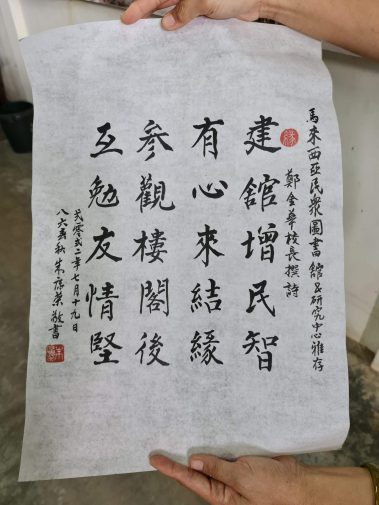 馬來西亞民衆圖書館及研究中心雅存
鄭金華校長撰詩
緣
建舘增民智
有心來結緣
參觀樓閣後
互勉友情堅
弍零弍二年七月十九日
八六叟秋朱
榮敬書